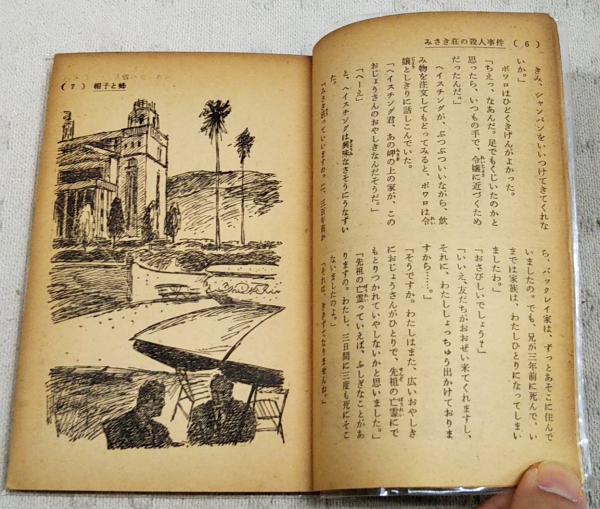 みさき荘の殺人事件 ( 6 )
きみ、シャンパンをいいつけてきてくれな
いか。」
ポワロはひどくきげんがよかった。
「ちえっ、なあんだ。足でもくじいたのかと
思ったら、いつもの手で、令嬢に近づくため
だったんだ。」
ヘイスチングが、ぶつぶついいながら、飲
み物を注文してもどってみると、ポワロは令
嬢としきりに話しこんでいた。
「ヘイスチング君、あの岬の上の家が、この
おじょうさんのおやしきなんだそうだ。」
「へーえ」
と、ヘイスチングは興味なさそうにうなずい
た。
「みさき荘っていいますの。
ら、バックレイ家は、ずっとあそこに住んで
いましたの。でも、兄が三年前に死んで、い
までは家族は、わたしひとりになってしまい
ましたわ。」
「おさびしいでしょう?」
「いいえ、友だちがおおぜい来てくれますし、
それに、わたしじょっちゅう出かけておりま
すから……。」
「そうですか。わたしはまた、広いおやしき
におじょうさんがひとりで、先祖の亡霊にで
もとりつかれていやしないかと思いました。」
「先祖の亡霊っていえば、ふしぎなことがあ
りますの。わたし、三日間に三度も死にそこ
ないましたのよ。」
「それは、ききずてなりませんね。」
( 7 ) 帽子と蜂